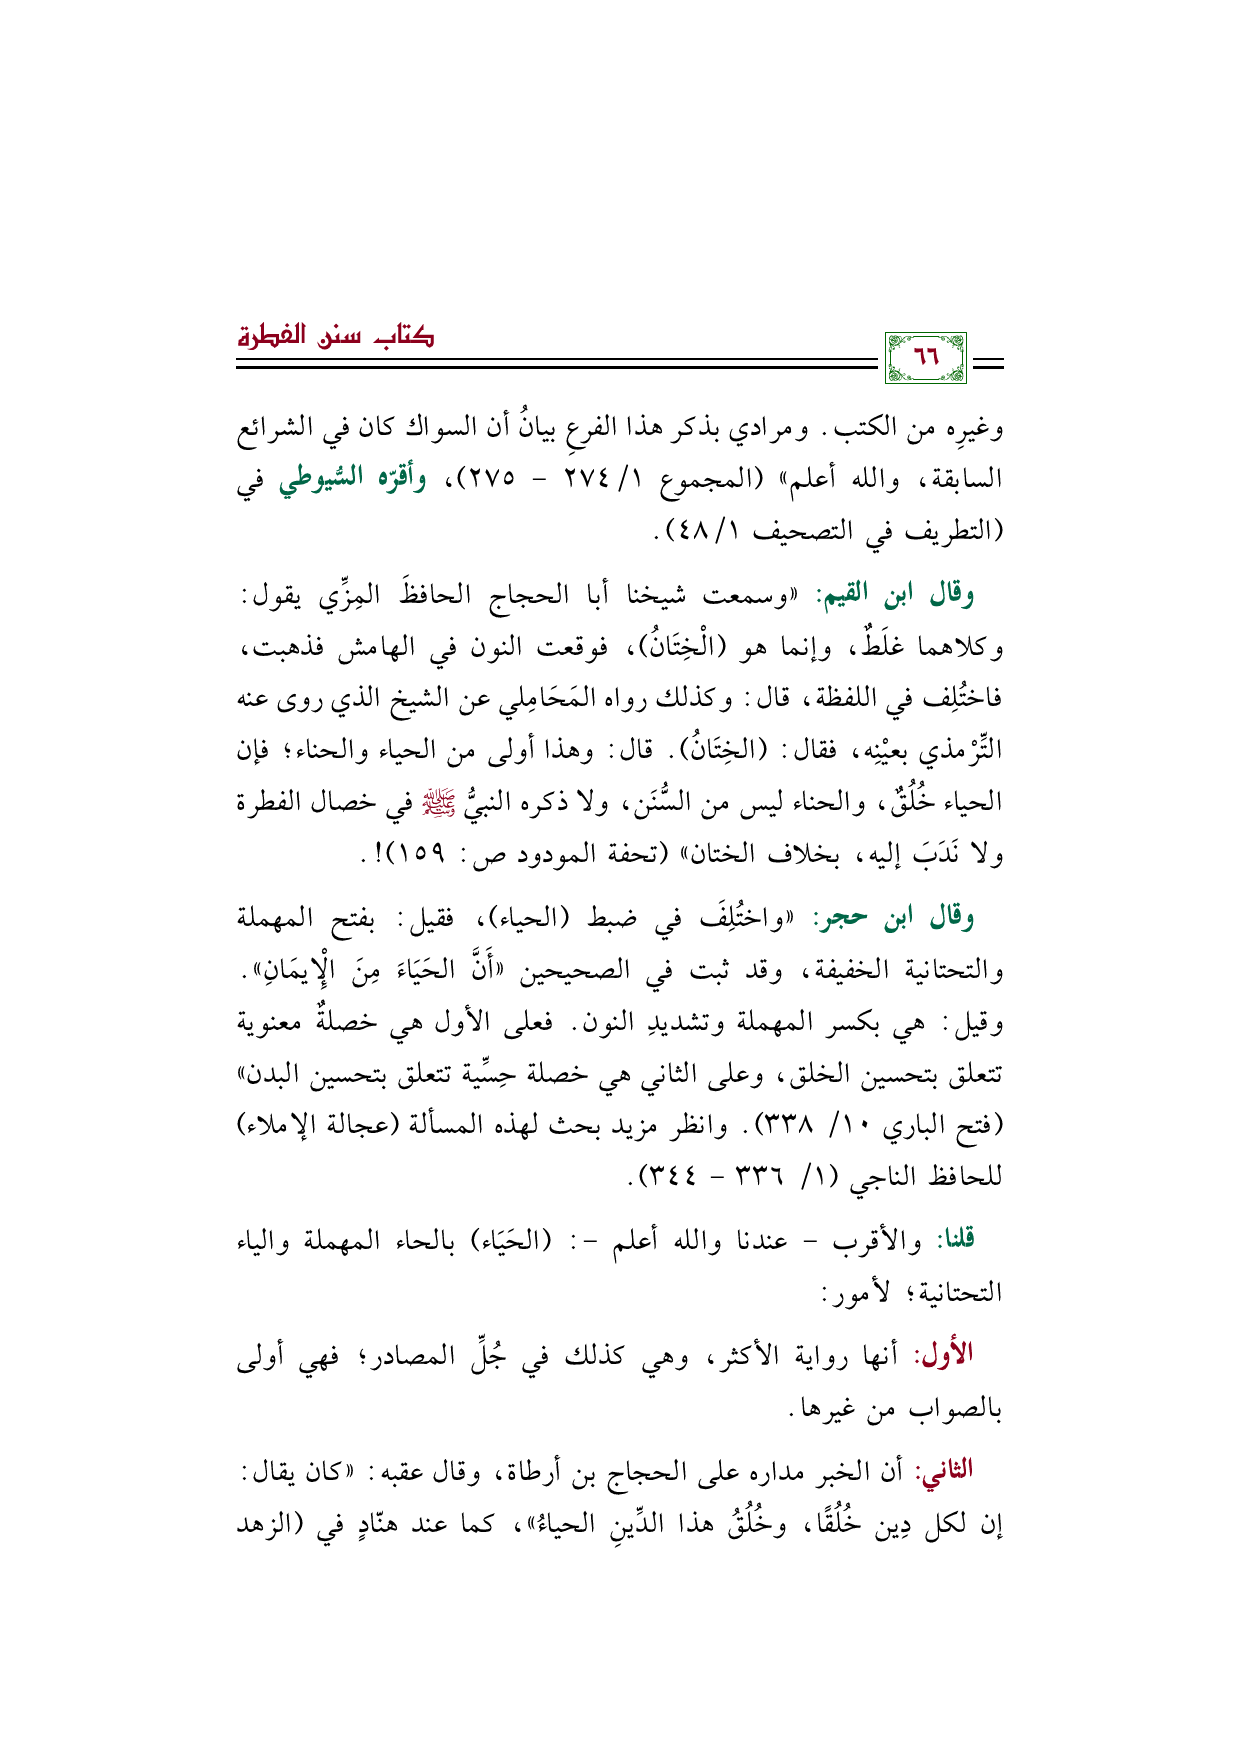 كتاب سنن الفطرة
٦٦
وغيرِه من الكتب. ومرادي بذكر هذا الفرعِ بيانُ أن السواك كان في الشرائع
السابقة، والله أعلم» (المجموع ١/ ٢٧٤ – ٢٧٥)، وأقرّه السُّيوطي في
(التطريف في التصحيف ١/ ٤٨).
وقال ابن القيم: «وسمعت شيخنا أبا الحجاج الحافظَ المِزِّي يقول:
وكلاهما غلَطٌ، وإنما هو (الْخِتَانُ)، فوقعت النون في الهامش فذهبت،
فاختُلِف في اللفظة، قال: وكذلك رواه المَحَامِلي عن الشيخ الذي روى عنه
التِّرْمذي بعيْنِه، فقال: (الخِتَانُ). قال: وهذا أولى من الحياء والحناء؛ فإن
الحياء خُلُقٌ، والحناء ليس من السُّنَن، ولا ذكره النبيُّ ﷺ في خصال الفطرة
ولا نَدَبَ إليه، بخلاف الختان» (تحفة المودود ص: ١٥٩)!.
وقال ابن حجر: «واختُلِفَ في ضبط (الحياء)، فقيل: بفتح المهملة
والتحتانية الخفيفة، وقد ثبت في الصحيحين «أَنَّ الحَيَاءَ مِنَ الْإِيمَانِ».
وقيل: هي بكسر المهملة وتشديدِ النون. فعلى الأول هي خصلةٌ معنوية
تتعلق بتحسين الخلق، وعلى الثاني هي خصلة حِسِّية تتعلق بتحسين البدن»
(فتح الباري ١٠/ ٣٣٨). وانظر مزيد بحث لهذه المسألة (عجالة الإملاء)
للحافظ الناجي (١/ ٣٣٦ – ٣٤٤).
قلنا: والأقرب – عندنا والله أعلم –: (الحَيَاء) بالحاء المهملة والياء
التحتانية؛ لأمور:
الأول: أنها رواية الأكثر، وهي كذلك في جُلِّ المصادر؛ فهي أولى
بالصواب من غيرها.
الثاني: أن الخبر مداره على الحجاج بن أرطاة، وقال عقبه: «كان يقال:
إن لكل دِين خُلُقًا، وخُلُقُ هذا الدِّينِ الحياءُ»، كما عند هنّادٍ في (الزهد